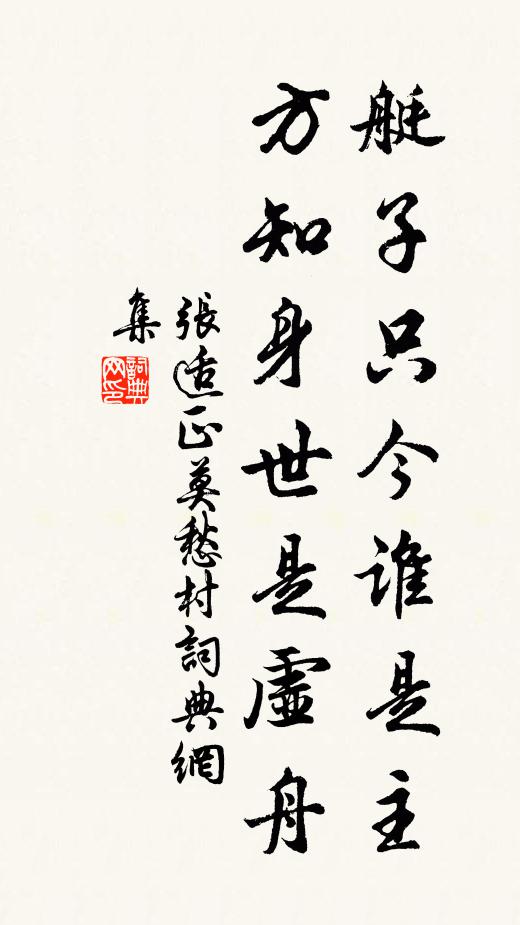 艇子只今谁是主
方知身世是虚舟
張适正莫愁村詞典網
集
詞典网印